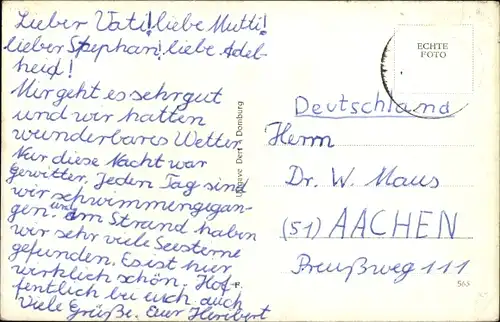 Lieber Vati! liebe Mutti!
lieber Stephan! liebe Adel-
heid!
Mir geht es sehr gut
und wir hatten
wunderbares Wetter
Nur diese Nacht war
Gewitter. Jeden Tag sind
wir schwimmengegan-
gen. und am Strand haben
wir sehr viele Seesterne
gefunden. Es ist hier
wirklich schön. Hof-
fentlich bei euch auch
Viele Grüße. Euer Heribert
Domburg
ECHTE
FOTO
Deutschland
Herrn
Dr. W. Maus
(51) AACHEN
Preußweg 111
565